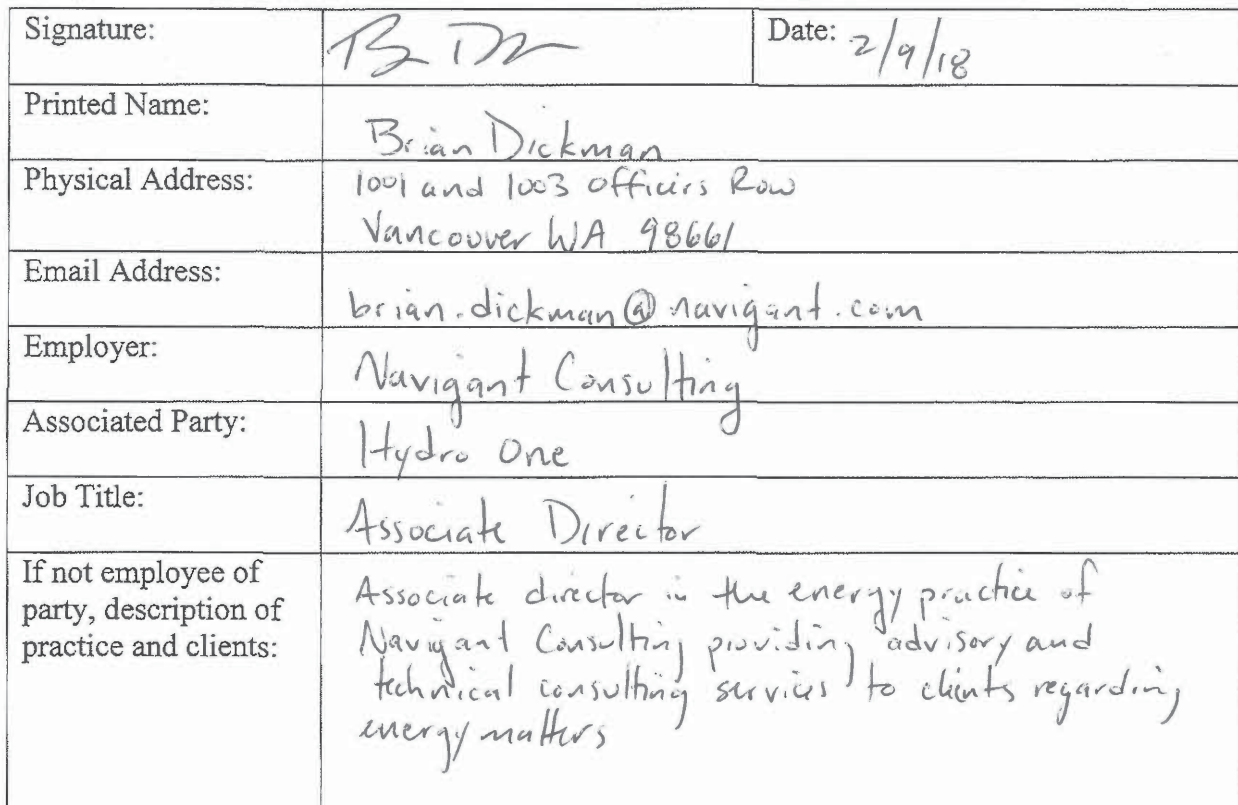 Signature:
Date: 2/9/18
Printed Name:
Brian Dickman
Physical Address:
1001 and 1003 Officers Row
Vancouver WA 98661
Email Address:
brian.dickman@navigant.com
Employer:
Navigant Consulting
Associated Party:
Hydro One
Job Title:
Associate Director
If not employee of
party, description of
practice and clients:
Associate director in the energy practice of
Navigant Consulting providing advisory and
technical consulting services to clients regarding
energy matters